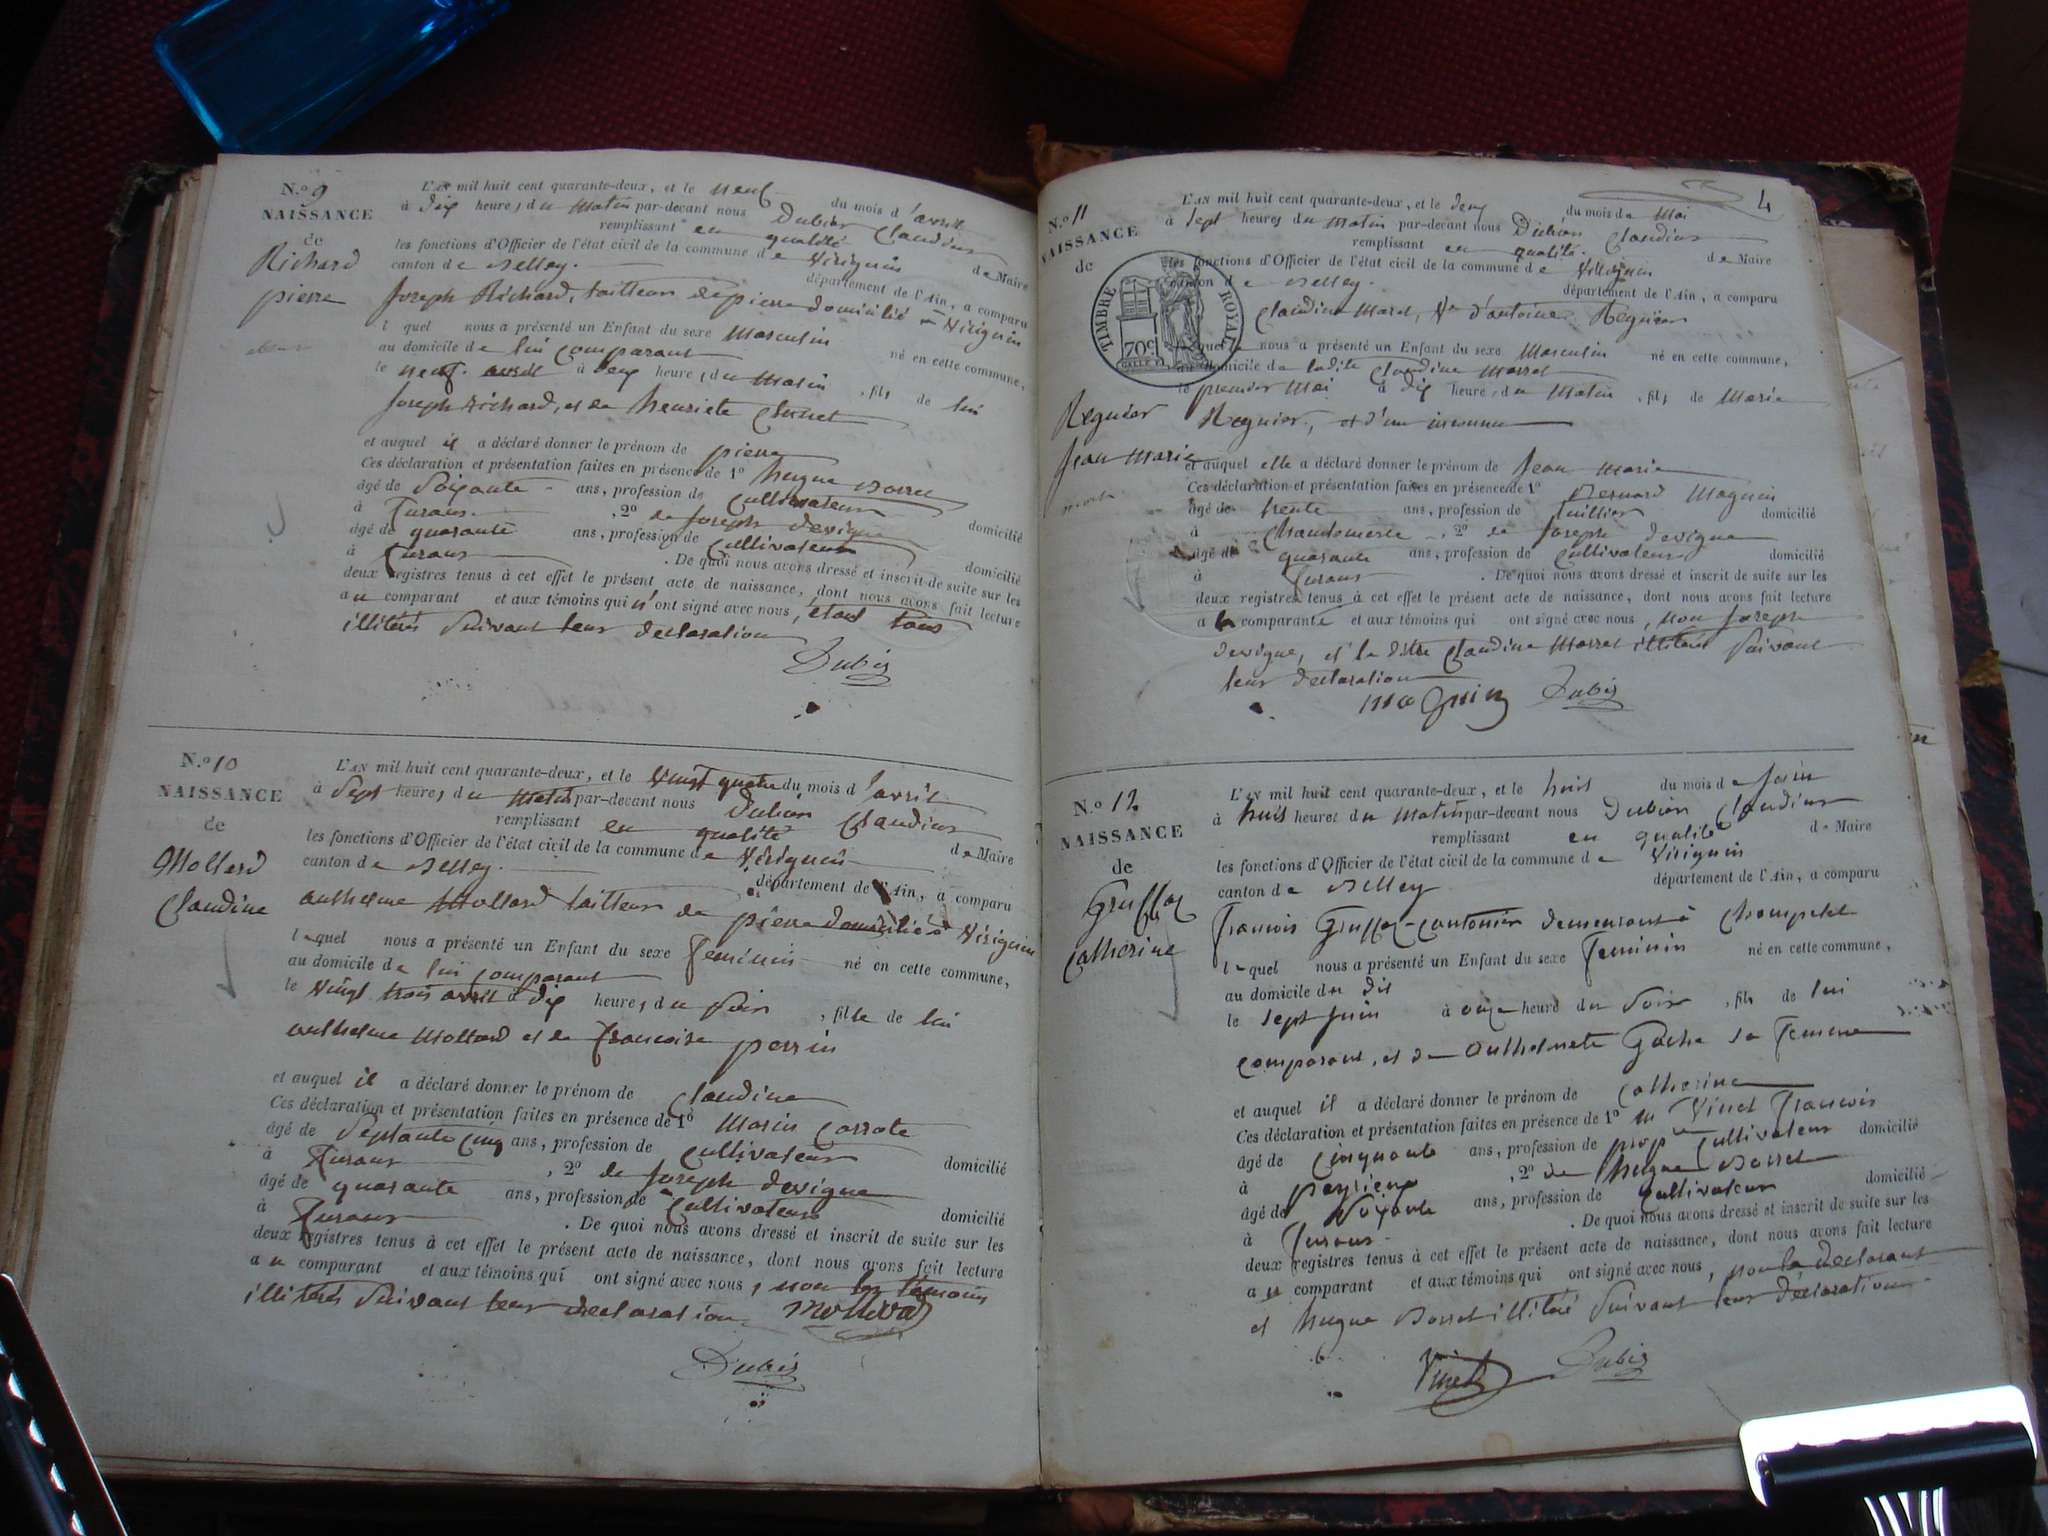 N.º 9
NAISSANCE
de
Richard
pierre
L'AN mil huit cent quarante-deux, et le neuf du mois d'avril
à dix heures du matin par-devant nous Dubier Claudius
remplissant en qualité de Maire
les fonctions d'Officier de l'état civil de la commune de Virignin
canton de Belley. département de l'Ain, a comparu
Joseph Richard, tailleur de pierre domicilié à Virignin
lequel nous a présenté un Enfant du sexe Masculin né en cette commune,
au domicile de lui comparant
le neuf avril à deux heures du matin, fils de lui
Joseph Richard, et de henriete
et auquel il a déclaré donner le prénom de pierre
Ces déclaration et présentation faites en présence de 1º hugue Borret
âgé de Soixante ans, profession de Cultivateur domicilié
à Furans, 2º de Joseph devigne
âgé de quarante ans, profession de Cultivateur domicilié
à Furans. De quoi nous avons dressé et inscrit de suite sur les
deux registres tenus à cet effet le présent acte de naissance, dont nous avons fait lecture
au comparant et aux témoins qui n'ont signé avec nous, étant tous
illitérés Suivant leur declaration
Dubier
N.º 10
NAISSANCE
de
Mollard
Claudine
L'AN mil huit cent quarante-deux, et le Vingt quatre du mois d'avril
à Sept heures du matin par-devant nous Dubier Claudius
remplissant en qualité de Maire
les fonctions d'Officier de l'état civil de la commune de Virignin
canton de Belley. département de l'Ain, a comparu
anthelme Mollard tailleur de pierre domicilié à Virignin
lequel nous a présenté un Enfant du sexe Feminin né en cette commune,
au domicile de lui comparant
le Vingt trois avril à dix heures du Soir, fille de lui
anthelme Mollard et de Francoise perrin
et auquel il a déclaré donner le prénom de Claudine
Ces déclaration et présentation faites en présence de 1º Marin Carrote
âgé de Septante Cinq ans, profession de Cultivateur domicilié
à Furans, 2º de Joseph devigne
âgé de quarante ans, profession de Cultivateur domicilié
à Furans. De quoi nous avons dressé et inscrit de suite sur les
deux registres tenus à cet effet le présent acte de naissance, dont nous avons fait lecture
au comparant et aux témoins qui ont signé avec nous, non les témoins
illitérés Suivant leur declaration. Mollard
Dubier
4
N.º 11
NAISSANCE
de
TIMBRE ROYAL
70c
Regnier
Jean Marie
L'AN mil huit cent quarante-deux, et le deux du mois de Mai
à Sept heures du Matin par-devant nous Dubier Claudius
remplissant en qualité de Maire
les fonctions d'Officier de l'état civil de la commune de Virignin
canton de Belley. département de l'Ain, a comparu
Claudine Marret, Ve d'antoine Regnier
nous a présenté un Enfant du sexe Masculin né en cette commune,
au domicile de ladite Claudine Marret
le premier Mai à dix heures du Matin, fils de Marie
Regnier, et d'un inconnu
et auquel elle a déclaré donner le prénom de Jean Marie
Ces déclaration et présentation faites en présence de 1º Bernard Maguin
âgé de trente ans, profession de tuillier domicilié
à Chandemerle, 2º de Joseph devigne
âgé de quarante ans, profession de Cultivateur domicilié
à Furans. De quoi nous avons dressé et inscrit de suite sur les
deux registres tenus à cet effet le présent acte de naissance, dont nous avons fait lecture
a la comparante et aux témoins qui ont signé avec nous, non Joseph
devigne, et la dite Claudine Marret illitérés Suivant
leur declaration
Maguin Dubier
N.º 12
NAISSANCE
de
Gruffaz
Catherine
L'AN mil huit cent quarante-deux, et le huit du mois de Juin
à huit heures du Matin par-devant nous Dubier Claudius
remplissant en qualité de Maire
les fonctions d'Officier de l'état civil de la commune de Virignin
canton de Belley département de l'Ain, a comparu
Francois Gruffaz cantonier demeurant à
lequel nous a présenté un Enfant du sexe Feminin né en cette commune,
au domicile du dit
le sept Juin à onze heures du Soir, fille de lui
comparant, et de Anthelmete Gache sa Femme
et auquel il a déclaré donner le prénom de Catherine
Ces déclaration et présentation faites en présence de 1º Vinet Francois
âgé de Cinquante ans, profession de prop Cultivateur domicilié
à peyrieux, 2º de hugue Borret
âgé de Soixante ans, profession de Cultivateur domicilié
à Furans. De quoi nous avons dressé et inscrit de suite sur les
deux registres tenus à cet effet le présent acte de naissance, dont nous avons fait lecture
au comparant et aux témoins qui ont signé avec nous, non le declarant
et hugue Borret illitéré Suivant leur déclaration
Vinet Dubier